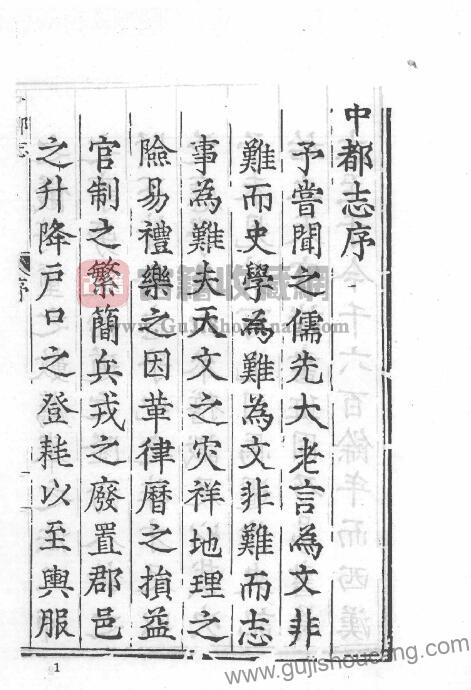 中都志序
予嘗聞之儒先大老言為文非
難而史學為難為文非難而志
事為難夫天文之灾祥地理之
險易禮樂之因革律曆之損益
官制之繁簡兵戎之廢置郡邑
之升降戶口之登耗以至輿服
序
1
www.gujishoucang.com